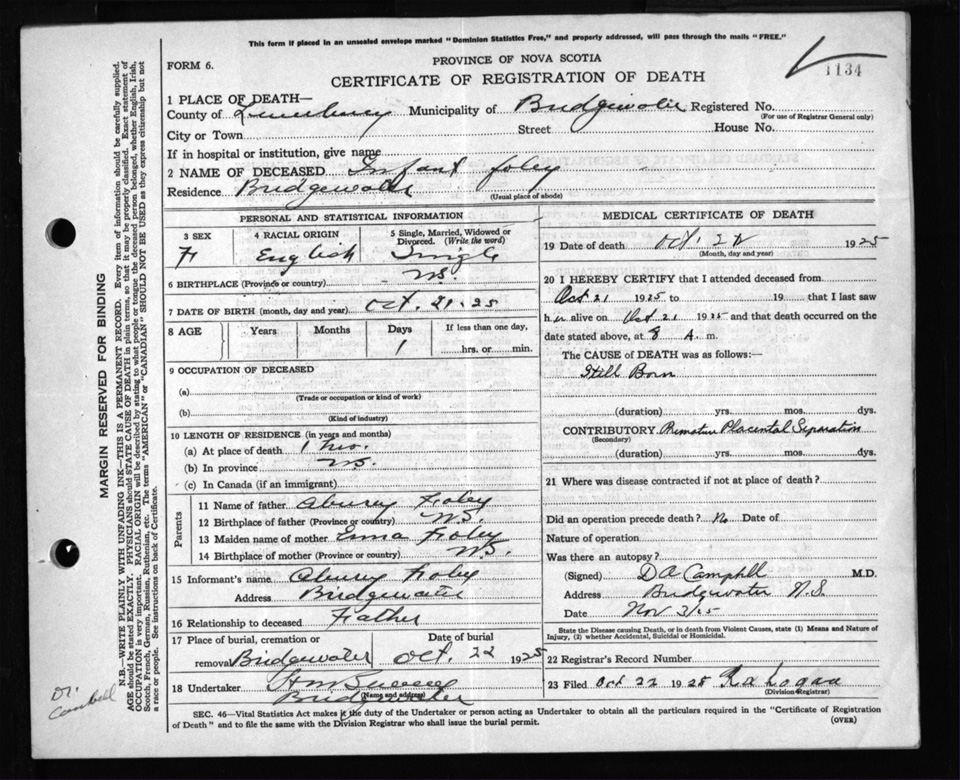 This form if placed in an unsealed envelope marked "Dominion Statistics Free," and properly addressed, will pass through the mails "FREE."
FORM 6.
PROVINCE OF NOVA SCOTIA
1134
CERTIFICATE OF REGISTRATION OF DEATH
1 PLACE OF DEATH—
County of Lunenburg Municipality of Bridgewater Registered No.
(For use of Registrar General only)
City or Town Street House No.
If in hospital or institution, give name
2 NAME OF DECEASED Infant Foley
Residence Bridgewater
(Usual place of abode)
PERSONAL AND STATISTICAL INFORMATION
3 SEX 4 RACIAL ORIGIN 5 Single, Married, Widowed or Divorced. (Write the word)
F English Single
6 BIRTHPLACE (Province or country) N.S.
7 DATE OF BIRTH (month, day and year) Oct. 21. 25
8 AGE Years Months Days If less than one day,
1 hrs. or min.
9 OCCUPATION OF DECEASED
(a)
(Trade or occupation or kind of work)
(b)
(Kind of industry)
10 LENGTH OF RESIDENCE (in years and months)
(a) At place of death 1
(b) In province N.S.
(c) In Canada (if an immigrant)
Parents
11 Name of father Foley
12 Birthplace of father (Province or country) N.S.
13 Maiden name of mother Foley
14 Birthplace of mother (Province or country) N.S.
15 Informant's name Foley
Address Bridgewater
16 Relationship to deceased Father
17 Place of burial, cremation or Date of burial
removal Bridgewater Oct. 22 1925
18 Undertaker
(Name and address)
Bridgewater
MEDICAL CERTIFICATE OF DEATH
19 Date of death Oct. 1925
(Month, day and year)
20 I HEREBY CERTIFY that I attended deceased from
Oct 21 1925 to 19 that I last saw
h er alive on Oct 21 1925 and that death occurred on the
date stated above, at 8 A. m.
The CAUSE of DEATH was as follows:—
Still Born
(duration) yrs. mos. dys.
CONTRIBUTORY Premature Placental Separation
(Secondary)
(duration) yrs. mos. dys.
21 Where was disease contracted if not at place of death?
Did an operation precede death? No Date of
Nature of operation
Was there an autopsy?
(Signed) D A Campbell M.D.
Address Bridgewater N.S.
Date Nov 3/25
State the Disease causing Death, or in death from Violent Causes, state (1) Means and Nature of
Injury, (2) whether Accidental, Suicidal or Homicidal.
22 Registrar's Record Number
23 Filed Oct 22 1925 Logan
(Division Registrar)
SEC. 46—Vital Statistics Act makes it the duty of the Undertaker or person acting as Undertaker to obtain all the particulars required in the "Certificate of Registration
of Death" and to file the same with the Division Registrar who shall issue the burial permit.
(OVER)
MARGIN RESERVED FOR BINDING
N.B.—WRITE PLAINLY WITH UNFADING INK—THIS IS A PERMANENT RECORD. Every item of information should be carefully supplied.
AGE should be stated EXACTLY. PHYSICIANS should STATE CAUSE OF DEATH in plain terms, so that it may be properly classified. Exact statement of
OCCUPATION is very important. RACIAL ORIGIN will be described by stating to what people or tongue the deceased person belonged, whether English, Irish,
Scotch, French, German, Russian, Ruthenian, etc. The terms "AMERICAN" or "CANADIAN" SHOULD NOT BE USED as they express citizenship but not
a race or people. See instructions on back of Certificate.
Dr.
Cambell